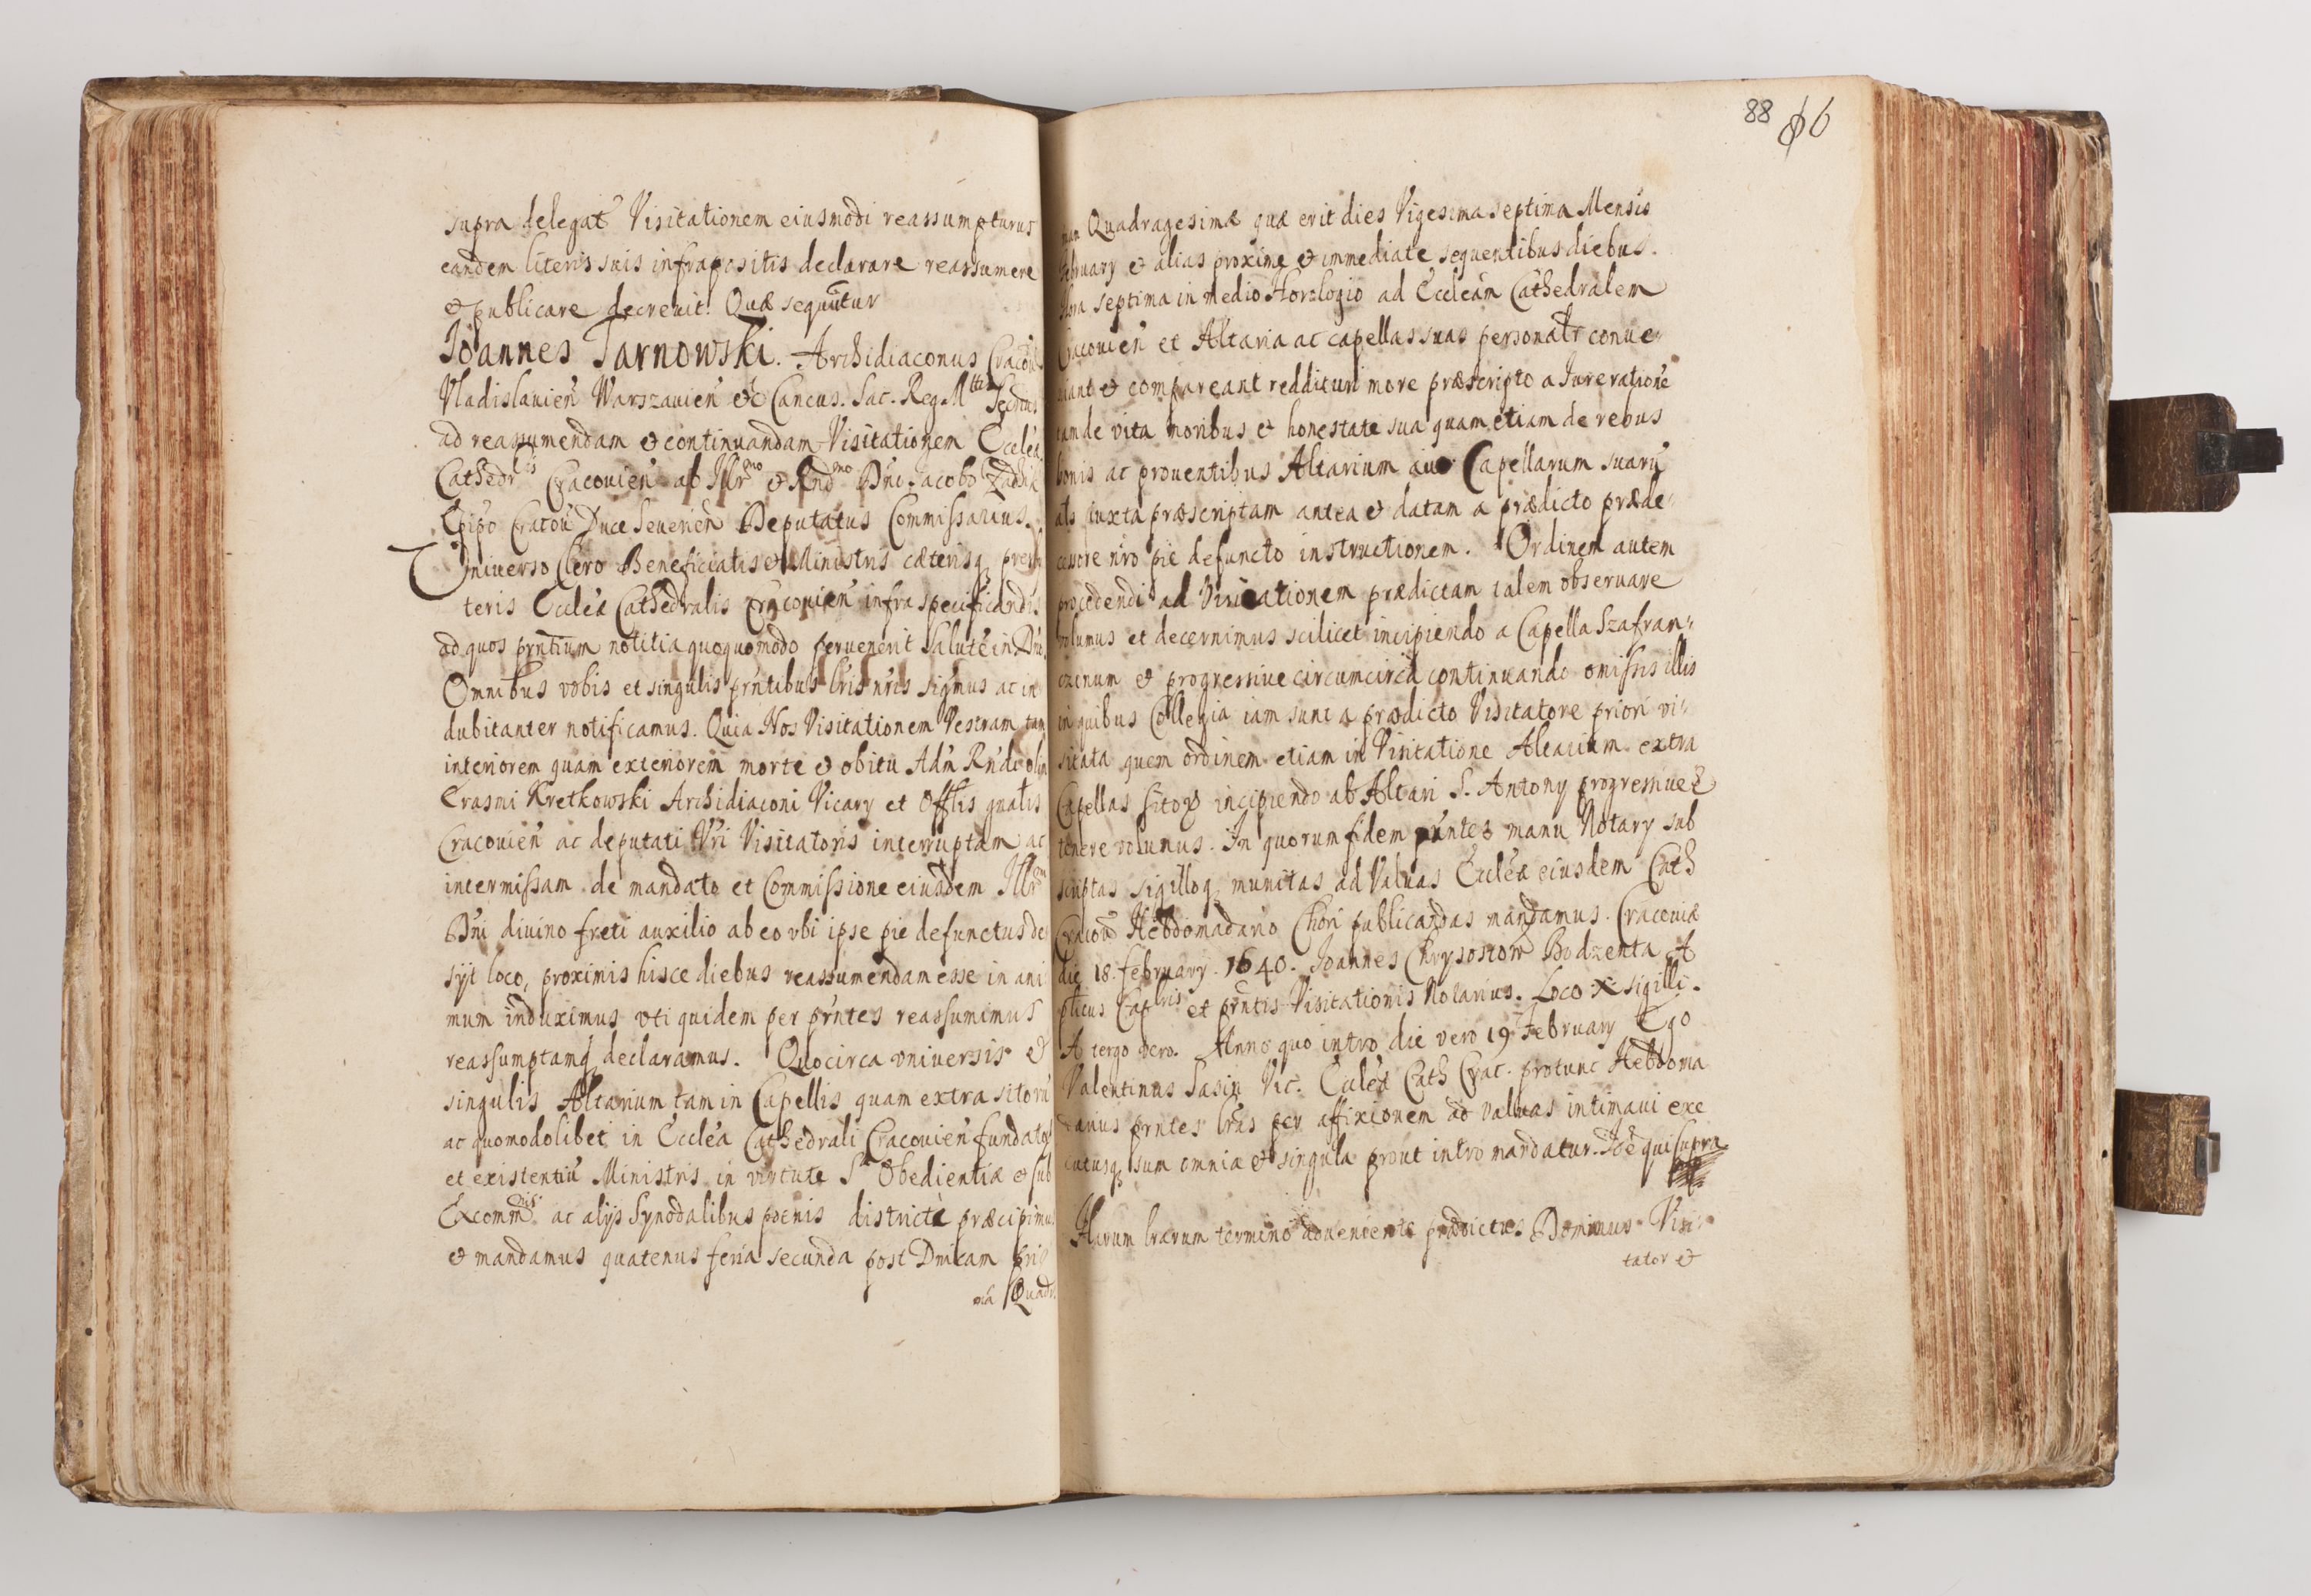 supra delegat' Visitationem eiusmodi reassumpturus
eandem literis suis infrapositis declarare reassumere
& publicare decreuit. Quæ sequūtur
Joannes Tarnowski. Archidiaconus Cracoū
Vladislauień Warszauień &c Cancus. Sac. Reg. M^ttis Secrius
ad reassumendam & continuandam Visitationem Eccleā
Cathedr^lis Cracouień ab Illr^mo & Rnd^mo Dńi Jacobo Zadzik
Epiṕo Cracoū Duce Seuerień Deputatus Commissarius.
Vniuerso Clero Beneficiatis & Ministris cæterisq presby
teris Eccleā Cathedralis Cracouień infra specificandis
ad quos prntium notitia quoquomodo peruenerit Salutē in Dńo.
Omnibus vobis et singulis prńtibus lris nris sigmus ac in
dubitanter notificamus. Quia Nos Visitationem Vestram tam
interiorem quam exteriorem morte & obitu Adm̃ Rńdi olim
Erasmi Kretkowski Archidiaconi Vicarÿ et Offlis gnalis
Cracouień ac deputati Vri Visitatoris interruptam ac
intermissam de mandato et Commissione eiusdem Illr^mi
Dńi diuino freti auxilio ab eo vbi ipse pie defunctus de
syt loco, proximis hisce diebus reassumendam esse in ani
mum induximus vti quidem per prńtes reassumimus
reassumptamq declaramus. Quocirca vniuersis &
singulis Altarium tam in Capellis quam extra sitorū
ac quomodolibet in Eccleā Cathedrali Cracouień fundator
et existentiū Ministris in virtute S Obedientiæ & sub
Excomm^nis ac alijs Synodalibus poenis districtè præcipimus
& mandamus quatenus feria secunda post Dnicam pri
mā Quadr
88 86
mam Quadragesimæ quæ erit dies Vigesima septima Mensis
Februarÿ & alias proximè & immediate sequentibus diebus.
Hora septima in medio Horologio ad Eccleām Cathedralem
Cracouień et Altaria ac capellas suas personalr conue-
niant & compareant reddituri more præscripto a Jure rationē
tam de vita moribus & honestate sua quam etiam de rebus
bonis ac prouentibus Altarium aut Capellarum suarū
als iuxta præscriptam antea & datam a prædicto præde-
cessore nro pie defuncto instructionem. Ordinem autem
procedendi ad Visitationem prædictam talem obseruare
volumus et decernimus scilicet incipiendo a Capella Szafran-
cinum & progressiue circumcirca continuando omissis illis
in quibus Collegia iam sunt a prædicto Visitatore priori vi-
sitata quem ordinem etiam in Visitatione Altarium extra
Capellas sitor incipiendo ab Altari S. Antonÿ progressiuè
tenere volumus. In quorum fidem prńtes manu Notarÿ sub
scriptas sigilloq munitas ad Valuas Eccleā eiusdem Cath
Cracoū Hebdomadario Chori publicandas mandamus. Cracouiæ
die 18. februarÿ. 1640. Joannes Chrysostom Bodzenta A
plicus Cap^lris et prńtis Visitationis Notarius. Loco X sigilli.
A tergo vero. Anno quo intro die vero 19 Februarÿ Ego
Valentinus Sasin Vic. Eccleā Cath Crac. protunc Hebdoma
darius prntes lras per affixionem ad valuas intimaui exe
cutusq sum omnia & singula prout intro mandatur. Idē qui supra
Harum lrarum termino adueniente prædictus Dominus Visi-
tator &